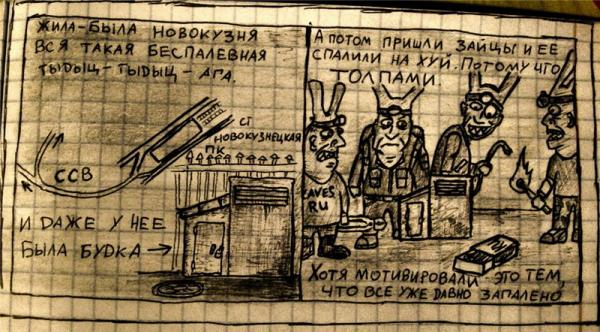 ЖИЛА-БЫЛА НОВОКУЗНЯ
ВСЯ ТАКАЯ БЕСПАЛЕВНАЯ
ТЫДЫЩ-ТЫДЫЩ-АГА.
СТ
НОВОКУЗНЕЦКАЯ
ПК
ССВ
И ДАЖЕ У НЕЕ
БЫЛА БУДКА →
А ПОТОМ ПРИШЛИ ЗАЙЦЫ И ЕЕ
СПАЛИЛИ НА ХУЙ. ПОТОМУ ЧТО
ТОЛПАМИ.
CAVES
RU
ХОТЯ МОТИВИРОВАЛИ ЭТО ТЕМ,
ЧТО ВСЕ УЖЕ ДАВНО ЗАПАЛЕНО